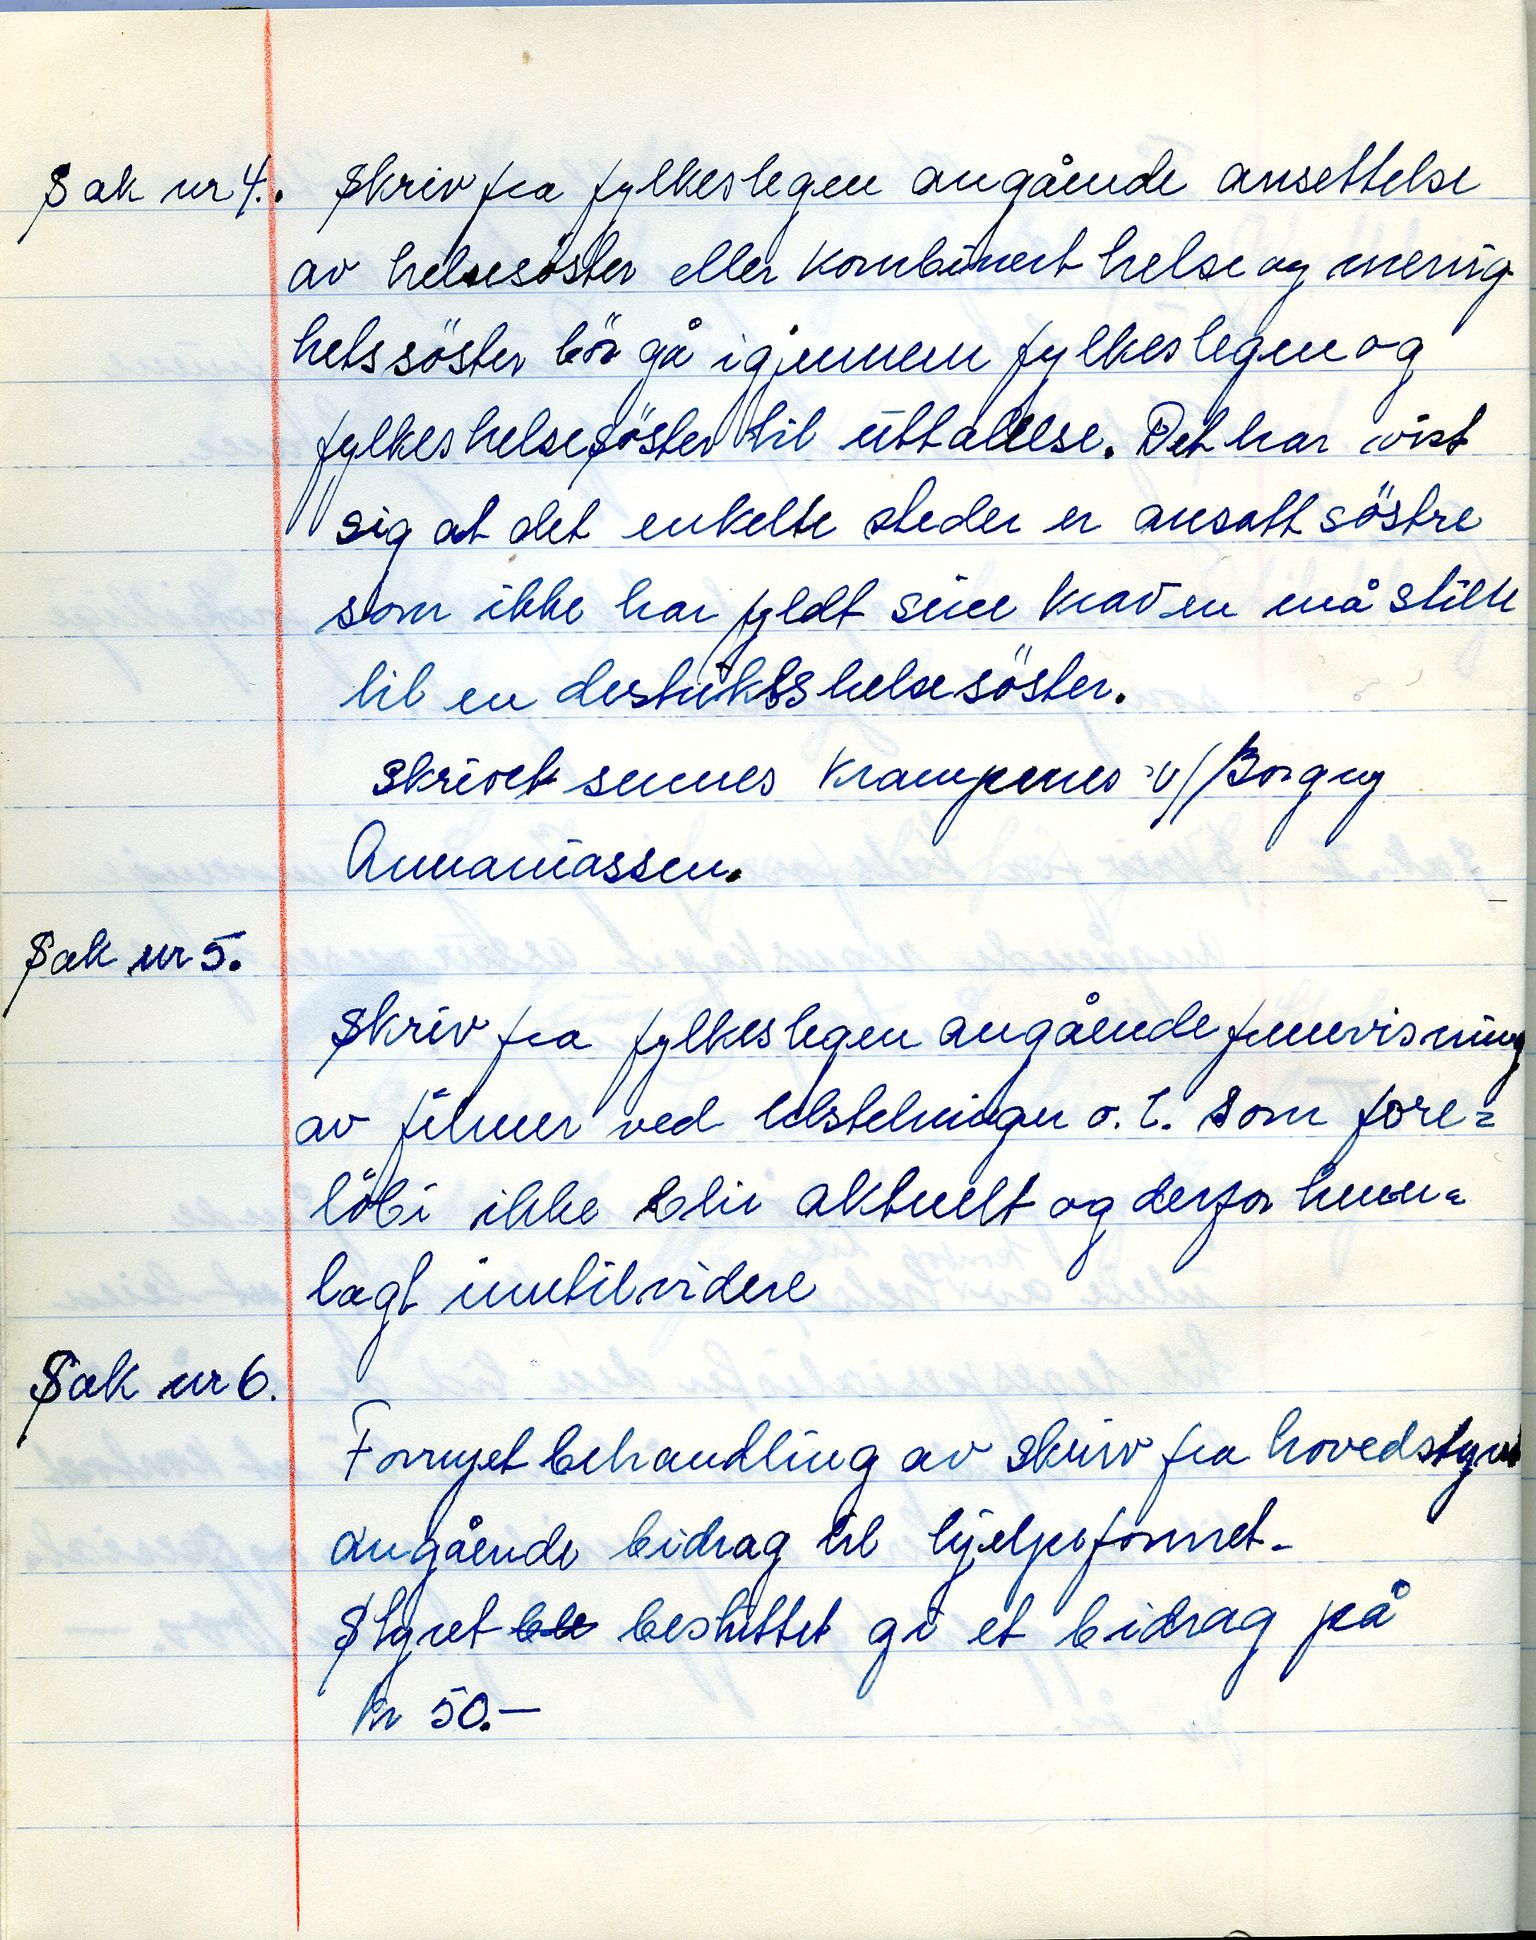 Sak nr 4. Skriv fra fylkeslegen angående ansettelse
av helsesöster eller kombinert helse og menig-
hetssöster bör gå igjennem fylkeslegen og
fylkeshelsesöster til uttalelse. Det har vist
sig at det enkelte steder er ansatt söstre
som ikke har fyldt sine krav en må stille
til en destriktshelsesöster.
Skrivet sennes Krampenes v/ Borgny
Annaniassen.
Sak nr 5.
Skriv fra fylkeslegen angående
av filmer ved tilstelninger o. l. som fore=
löbi ikke blir aktuelt og derfor henn=
lagt inntilvidere
Sak nr 6.
Fornyet behandling av skriv fra hovedstyret
angående bidrag til hjelpefonnet.
Styret ble besluttet gi et bidrag på
kr 50.-